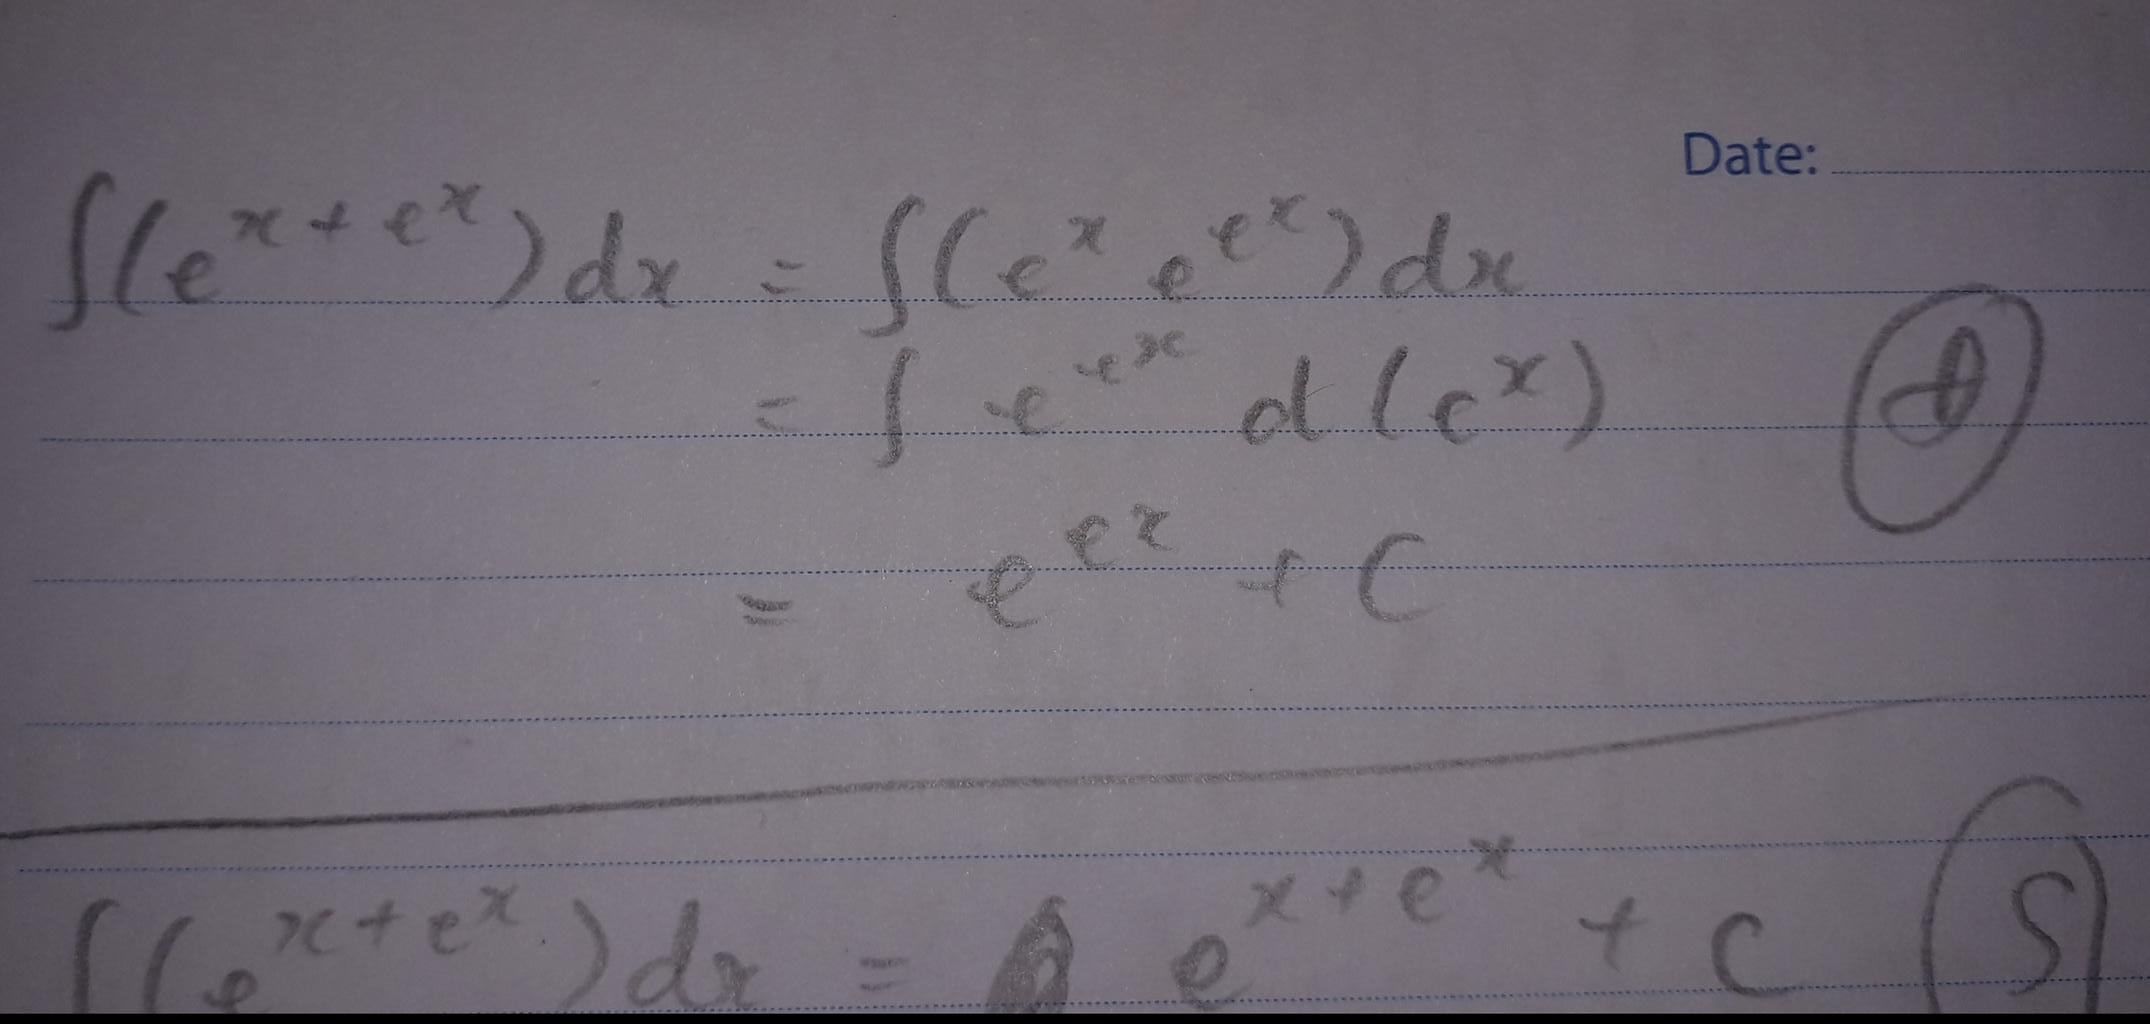 Date:
∫(e^{x+e^x})dx = ∫(e^x e^{e^x})dx
= ∫ e^{e^x} d(e^x)
= e^{e^x} + C
∫(e^{x+e^x})dx = e^{x+e^x} + C